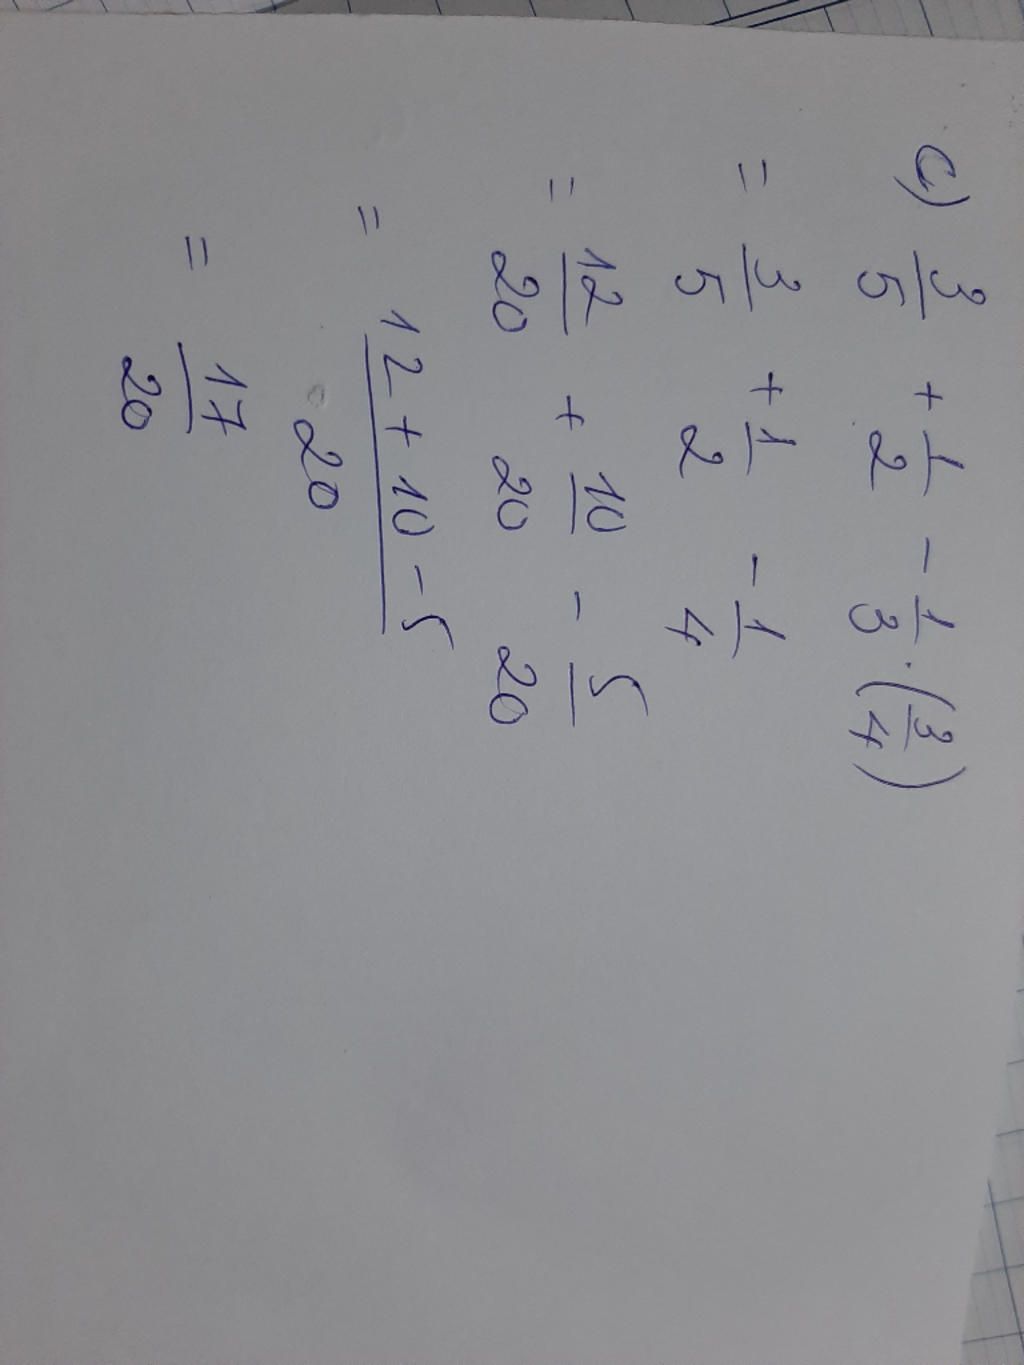 c) 3/5 + 1/2 - 1/3 · (3/4)
= 3/5 + 1/2 - 1/4
= 12/20 + 10/20 - 5/20
= 12 + 10 - 5 / 20
= 17/20